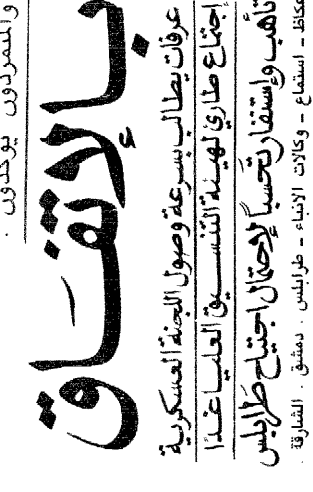 والمتمردون يؤكدون .
بالاتفاق
عرفات يطالب بسرعة وصول اللجنة العسكرية
إجتماع طارئ لهيئة التنسيق العليا غدا
تأهب وإستنفار تحسباً لإحتمال اجتياح طرابلس
عكاظ - استماع - وكالات الانباء - طرابلس . دمشق . الشارقة .